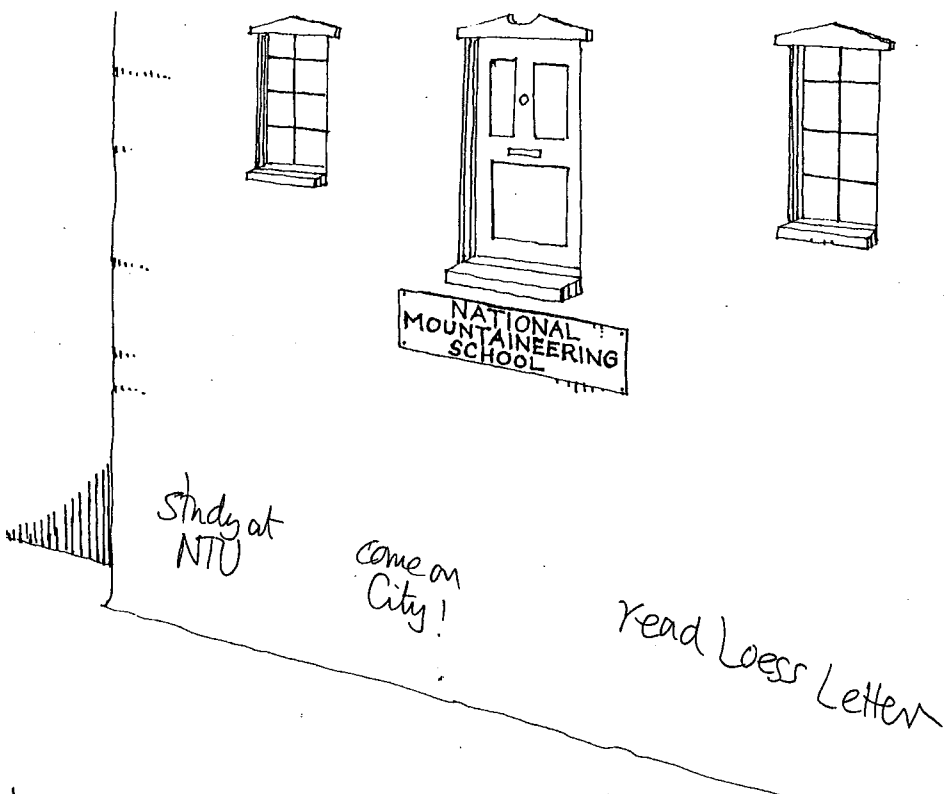 NATIONAL
MOUNTAINEERING
SCHOOL
study at
NTU
come on
City!
read Loess Letter